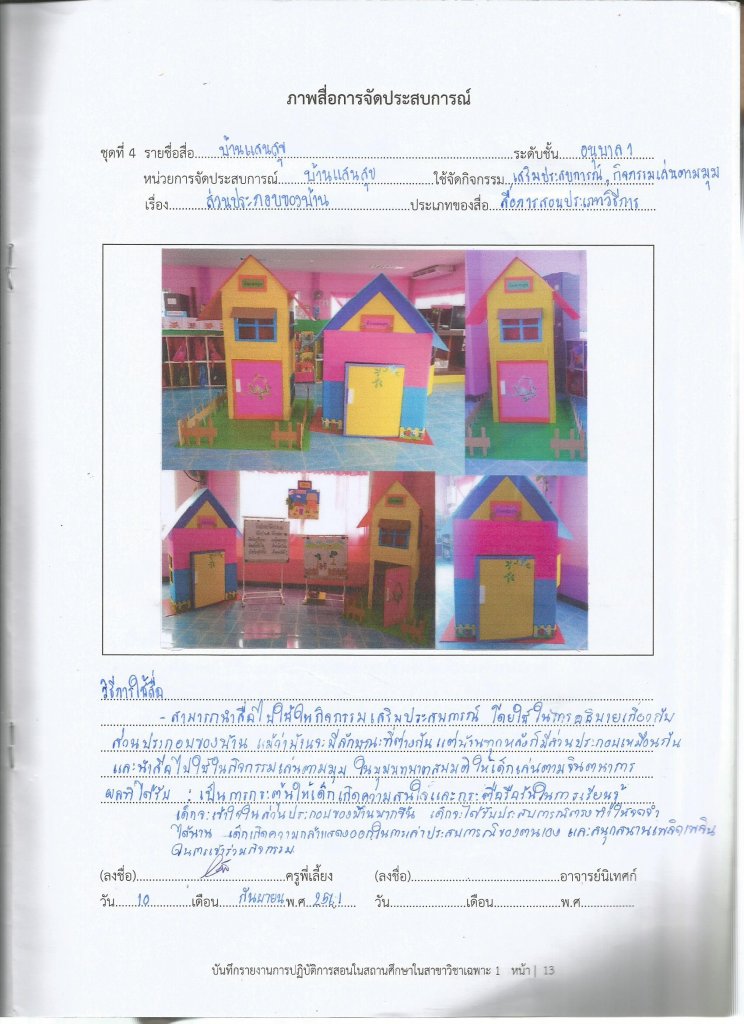 ภาพสื่อการจัดประสบการณ์
ชุดที่ 4 รายชื่อสื่อ บ้านแสนสุข ระดับชั้น อนุบาล 1
หน่วยการจัดประสบการณ์ บ้านแสนสุข ใช้จัดกิจกรรม เสริมประสบการณ์, กิจกรรมเล่นตามมุม
เรื่อง ส่วนประกอบของบ้าน ประเภทของสื่อ สื่อการสอนประเภทวิธีการ
วิธีการใช้สื่อ
- สามารถนำสื่อไปใช้ในกิจกรรมเสริมประสบการณ์ โดยใช้ในการอธิบายเกี่ยวกับ
ส่วนประกอบของบ้าน แม้ว่าบ้านจะมีลักษณะที่ต่างกัน แต่บ้านทุกหลังก็มีส่วนประกอบเหมือนกัน
และนำสื่อไปใช้ในกิจกรรมเล่นตามมุม ในมุมบทบาทสมมติ ให้เด็กเล่นตามจินตนาการ
ผลที่ได้รับ : เป็นการกระตุ้นให้เด็กเกิดความสนใจและกระตือรือร้นในการเรียนรู้
เด็กจะเข้าใจในส่วนประกอบของบ้านมากขึ้น เด็กจะได้รับประสบการณ์ตรง ทำให้จดจำ
ได้นาน เด็กเกิดความกล้าแสดงออกในการเล่าประสบการณ์ของตนเอง และสนุกสนานเพลิดเพลิน
ในการเข้าร่วมกิจกรรม
(ลงชื่อ) ครูพี่เลี้ยง (ลงชื่อ) อาจารย์นิเทศก์
วัน 10 เดือน กันยายน พ.ศ. 2561 วัน เดือน พ.ศ.
บันทึกรายงานการปฏิบัติการสอนในสถานศึกษาในสาขาวิชาเฉพาะ 1 หน้า | 13